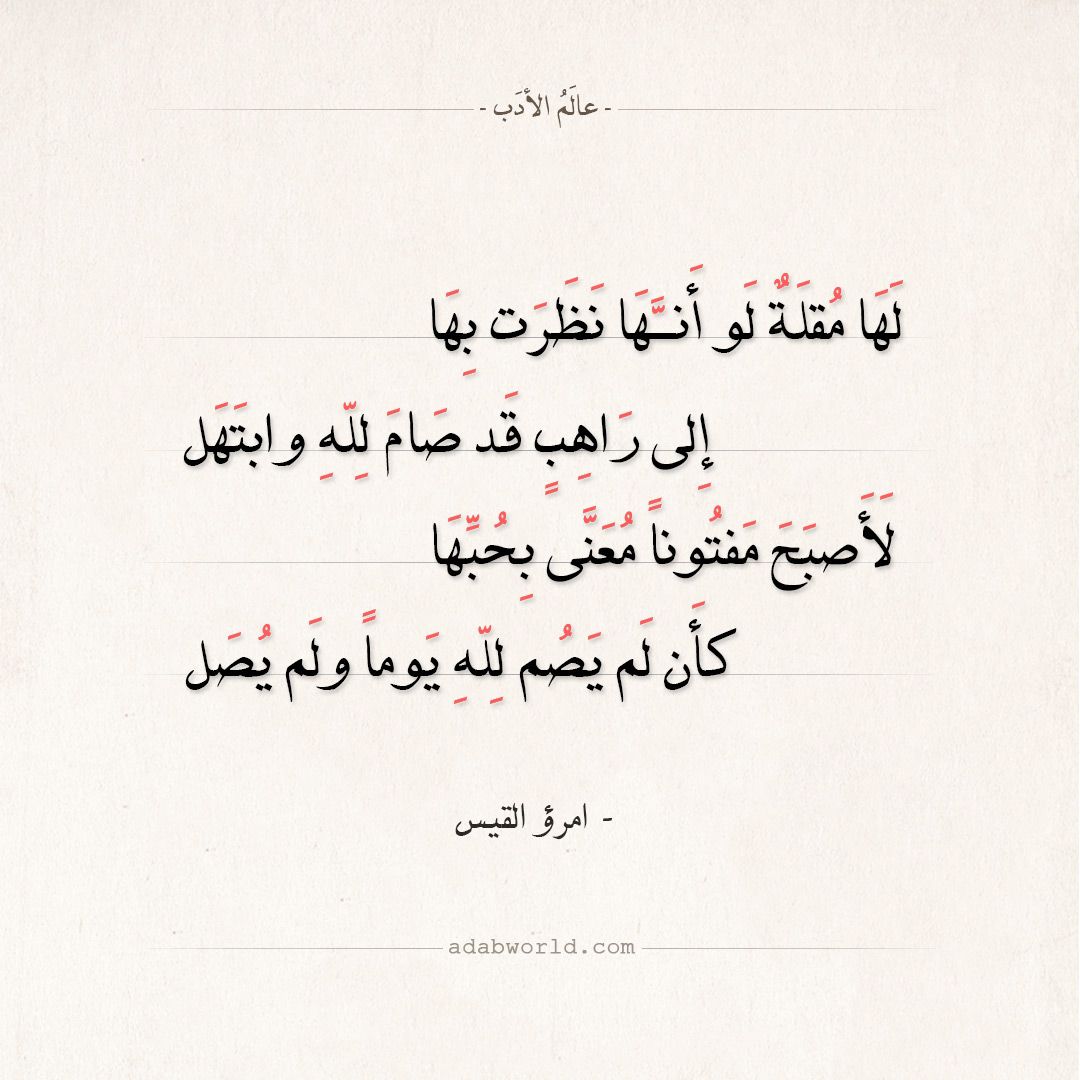 - عالَمُ الأدَب -
لَهَا مُقلَةٌ لَو أَنَّهَا نَظَرَت بِهَا
إِلى رَاهِبٍ قَد صَامَ لِلّهِ وابتَهَل
لَأَصبَحَ مَفتُوناً مُعَنَّى بِحُبِّهَا
كأَن لَم يَصُم لِلّهِ يَوماً ولَم يُصَل
- امرؤ القيس
adabworld.com